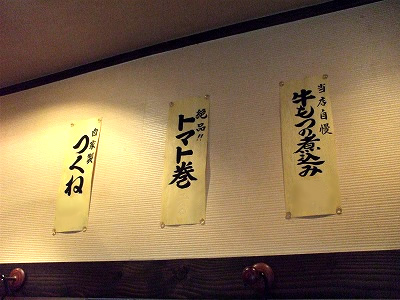 当店自慢
牛もつの煮込み
絶品!!
トマト巻
自家製
つくね